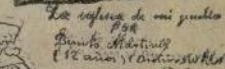 La iglesia de mi pueblo
POR
Benito Martinez
(12 años)